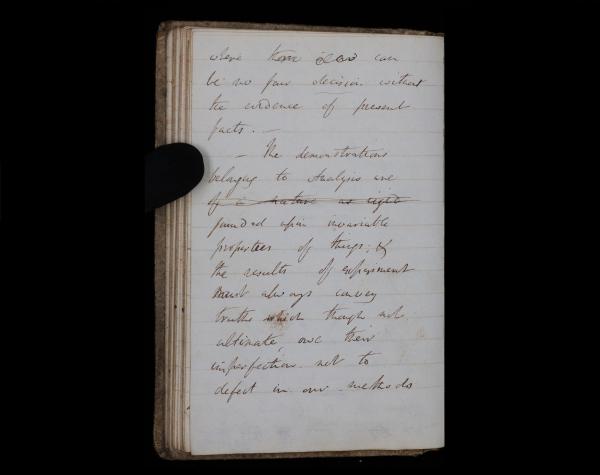 where there can
be no fair decision without
the evidence of present
facts. —
— The demonstrations
belonging to Analysis are
of a nature as rigid
founded upon invariable
properties of things; &
the results of experiment
must always convey
truths which though not
ultimate, owe their
imperfection not to
defect in our methods